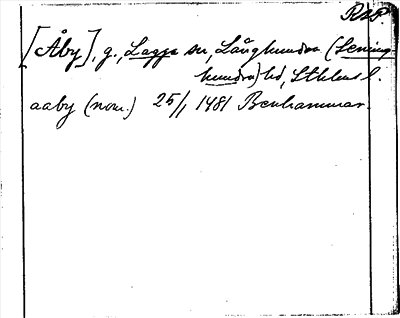 RAP.
[Åby], g., Lagga sn, Långhundra (Seming
hundra) hd, Sthlms l.
aaby (nom.) 25/1 1481 Benhammar.